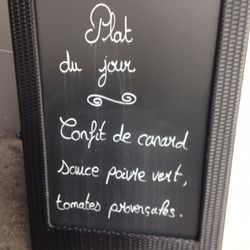 Plat
du jour
Confit de canard
sauce poivre vert,
tomates provençales.